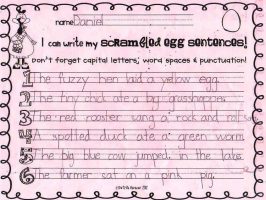 name Daniel
I can write my scrambled egg sentences!
Don't forget capital letters, word spaces & punctuation!
1 The fuzzy hen laid a yellow egg.
2 The tiny chick ate a big grasshopper.
3 The red rooster sang a rock and roll
4 A spotted duck ate a green worm.
5 The big blue cow jumped in the lake.
6 The farmer sat on a pink pig.